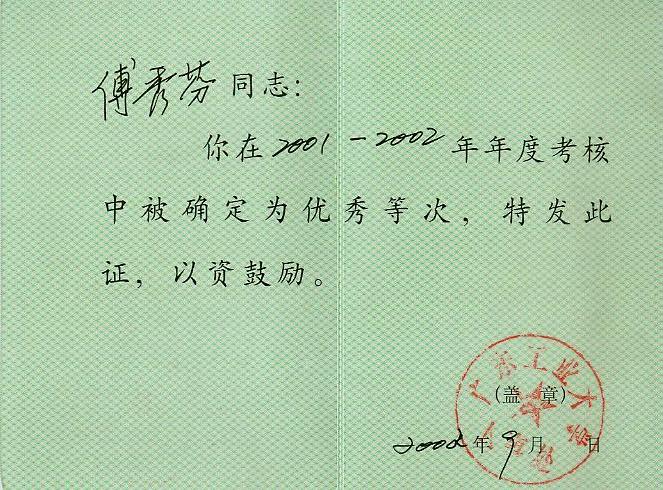 傅秀芬同志：
你在2001-2002年年度考核
中被确定为优秀等次，特发此
证，以资鼓励。
广东工业大学
(盖 章)
2002年9月 日